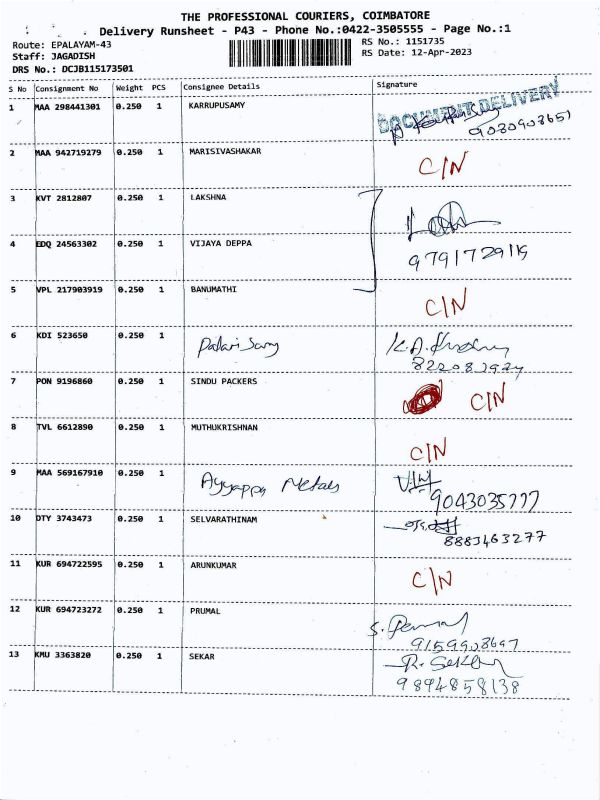 THE PROFESSIONAL COURIERS, COIMBATORE
Delivery Runsheet - P43 - Phone No.:0422-3505555 - Page No.:1
Route: EPALAYAM-43
RS No.: 1151735
Staff: JAGADISH
RS Date: 12-Apr-2023
DRS No.: DCJB115173501
S No Consignment No Weight PCS Consignee Details Signature
1 MAA 298441301 0.250 1 KARRUPUSAMY DOCUMENT DELIVERY
9080908651
2 MAA 942719279 0.250 1 MARISIVASHAKAR C/N
3 KVT 2812807 0.250 1 LAKSHNA
4 EDQ 24563302 0.250 1 VIJAYA DEPPA
9791729119
5 VPL 217903919 0.250 1 BANUMATHI C/N
6 KDI 523650 0.250 1
7 PON 9196860 0.250 1 SINDU PACKERS C/N
8 TVL 6612890 0.250 1 MUTHUKRISHNAN C/N
9 MAA 569167910 0.250 1 Ayyappa Metals
9043035777
10 DTY 3743473 0.250 1 SELVARATHINAM
8883463277
11 KUR 694722595 0.250 1 ARUNKUMAR C/N
12 KUR 694723272 0.250 1 PRUMAL
9159908697
13 KMU 3363820 0.250 1 SEKAR R. Sekar
9894858138